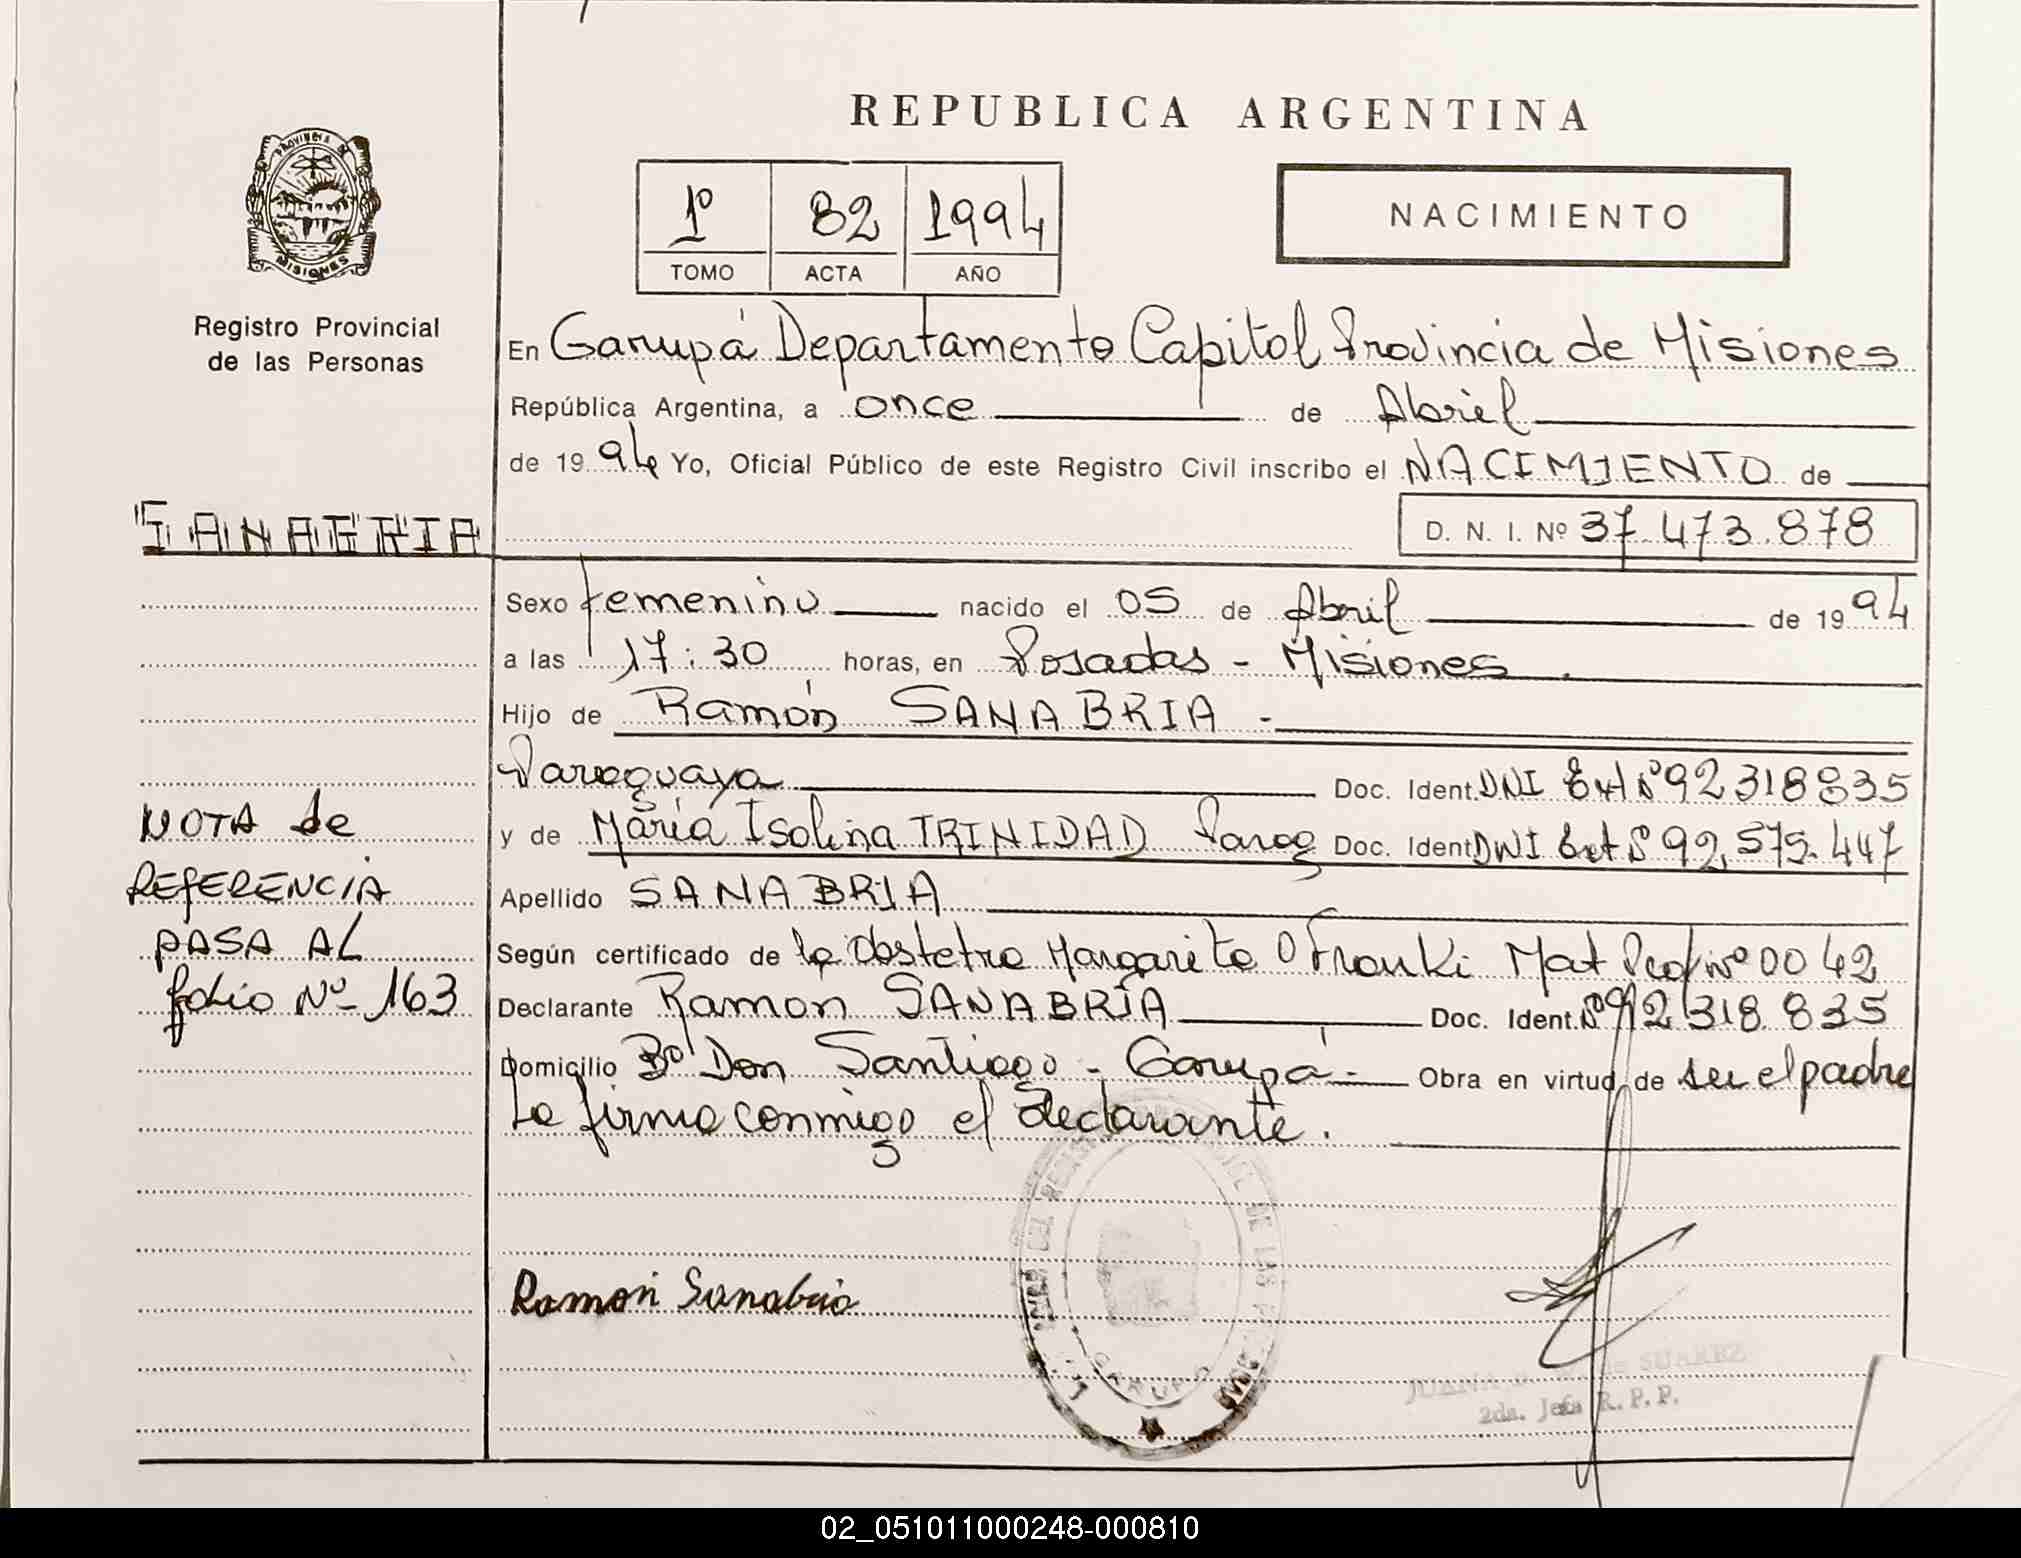 REPUBLICA ARGENTINA
PROVINCIA DE
MISIONES
Registro Provincial
de las Personas
1º 82 1994
TOMO ACTA AÑO
NACIMIENTO
En Garupá Departamento Capital Provincia de Misiones
República Argentina, a once de Abriel
de 1994 Yo, Oficial Público de este Registro Civil inscribo el NACIMIENTO de
D. N. I. Nº 37.473.878
Sexo femenino nacido el 05 de Abril de 1994
a las 17:30 horas, en Posadas - Misiones.
Hijo de Ramón SANABRIA -
Paraguaya Doc. Ident. DNI Ext Nº 92 318835
y de María Isolina TRINIDAD Parag Doc. Ident DNI Ext Nº 92,575.447
Apellido SANABRIA
Según certificado de la Obstetra Margarita Mat Prof nº 0042
Declarante Ramon SANABRIA Doc. Ident. Nº 92 318.835
Domicilio Bº Don Santiago - Garupá - Obra en virtud de ser el padre
Lo firma conmigo el declarante.
NOTA de
REFERENCIA
PASA AL
folio Nº 163
Ramon Sanabria
GARUPA
JUANA de SUAREZ
2da. Jefa R.P.P.
02_051011000248-000810